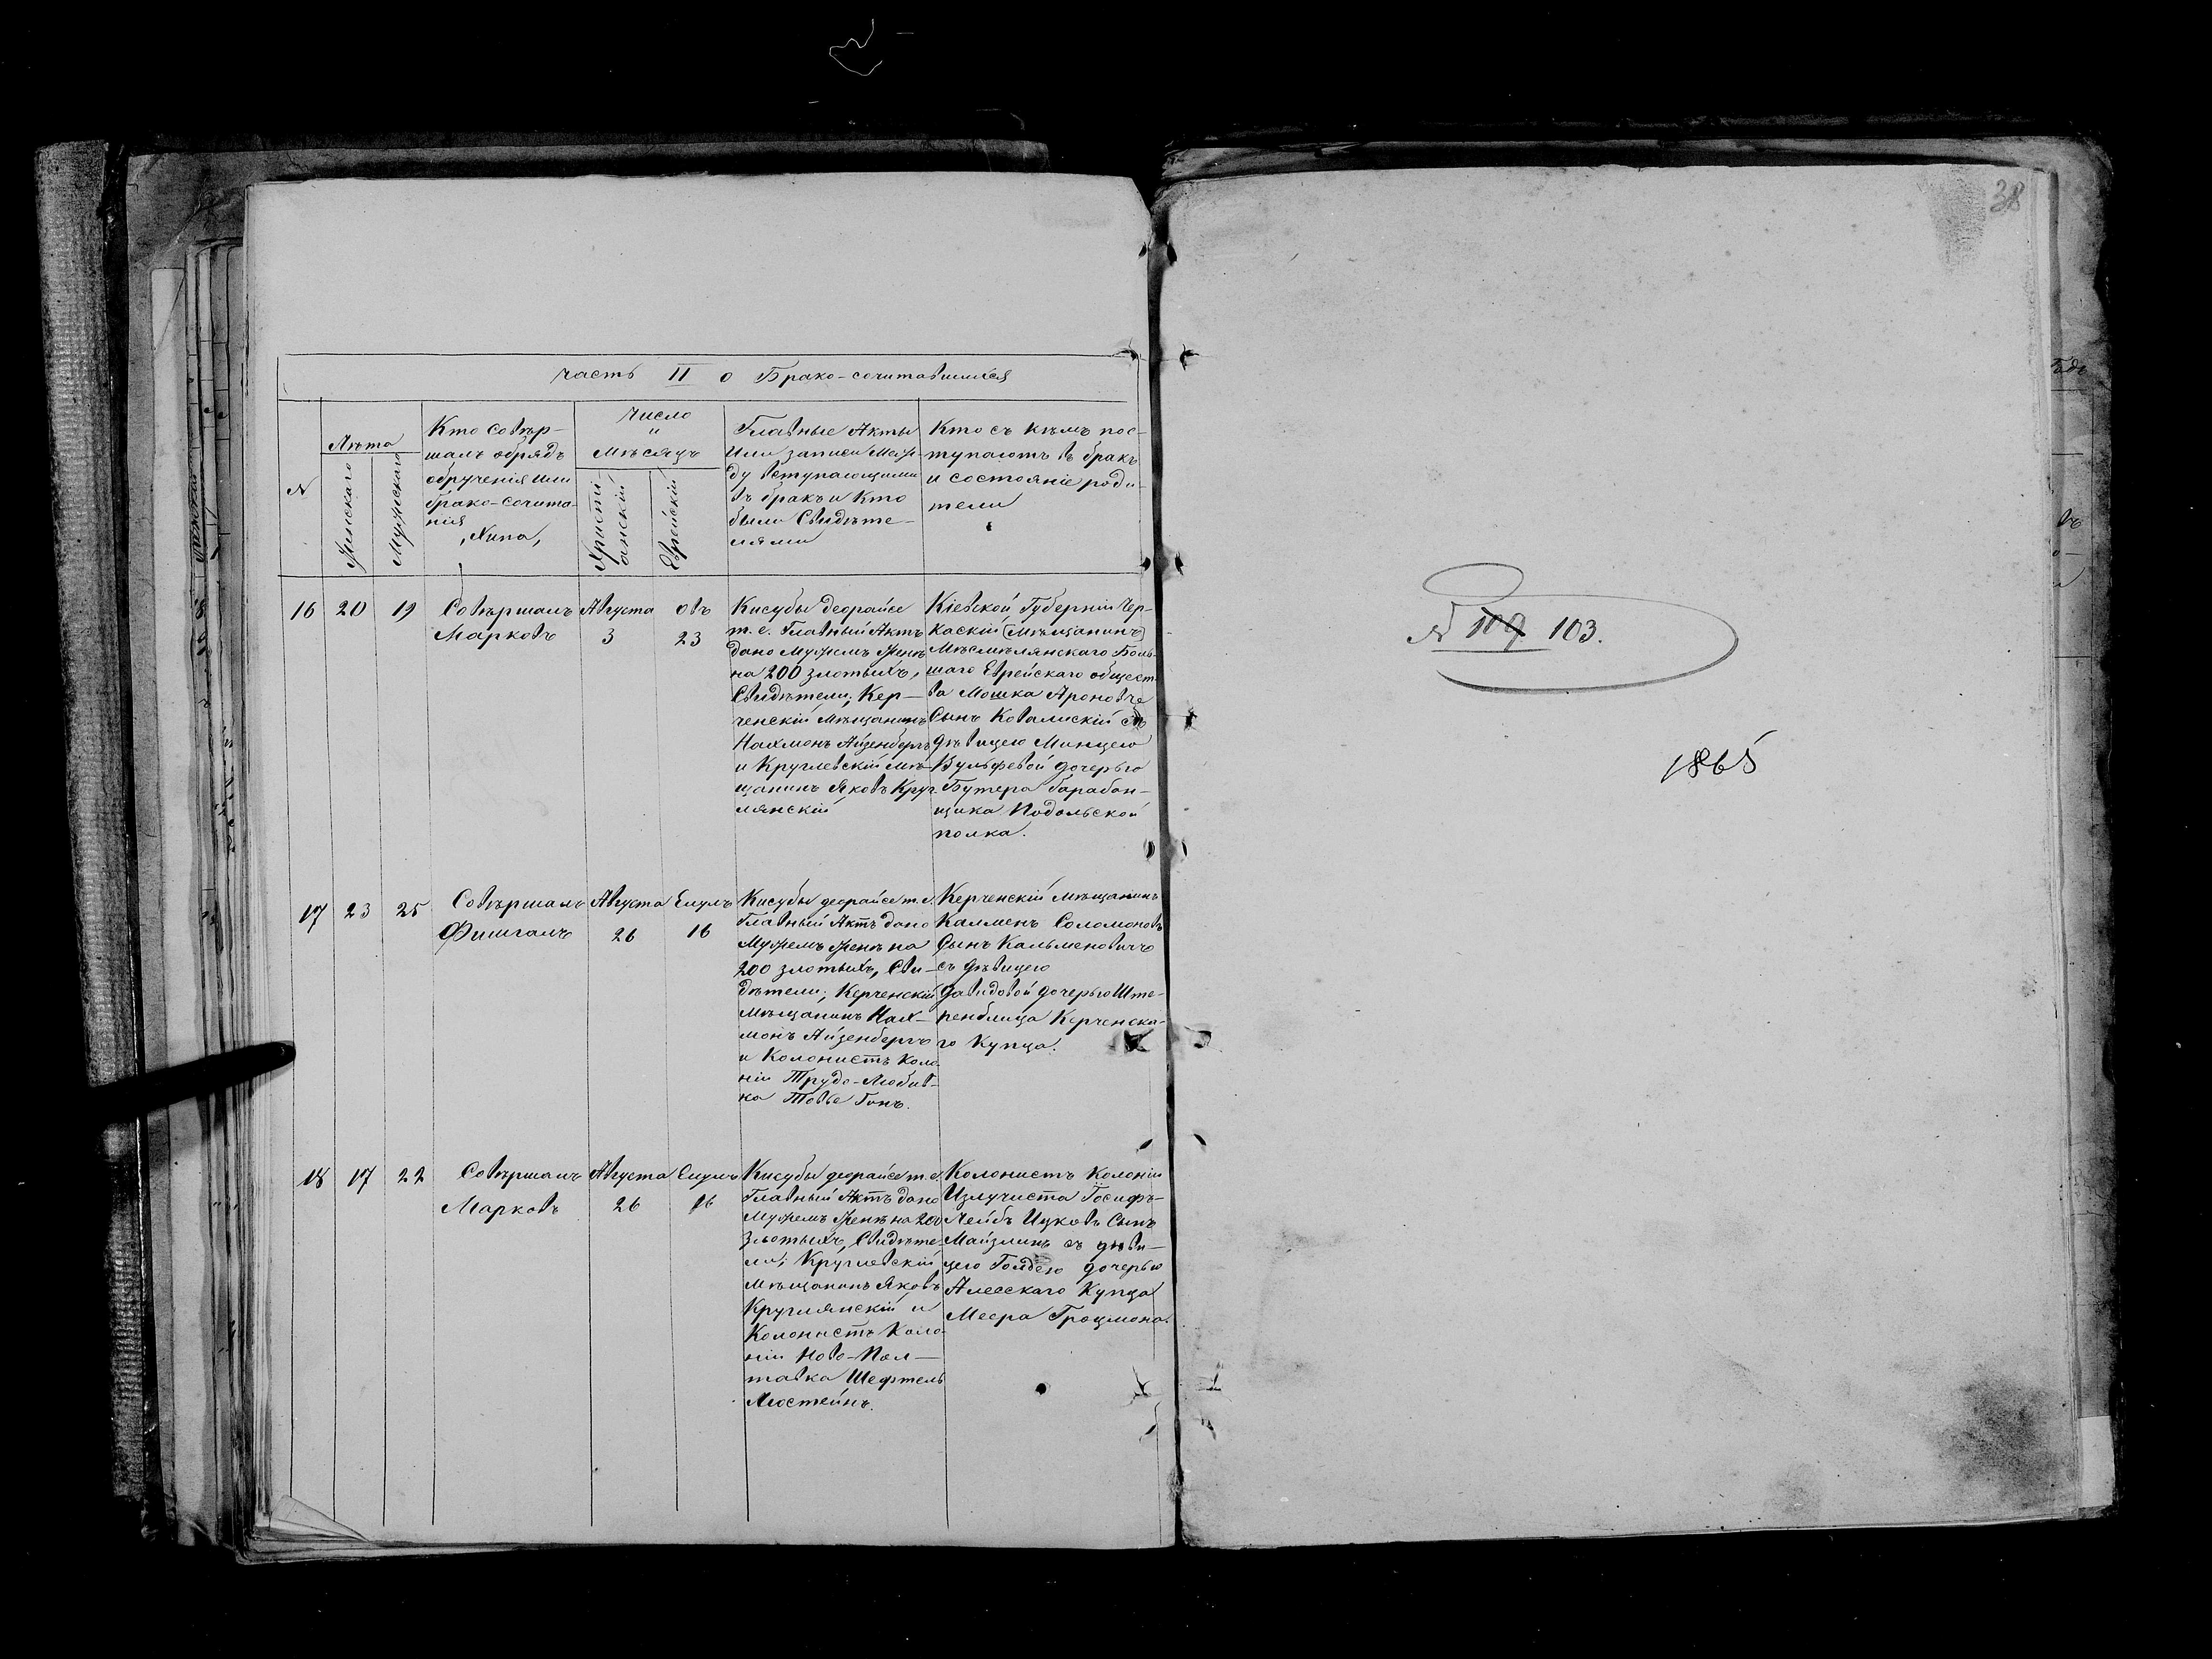 Часть II о Брако-сочитавшихся
N
Лѣта
Женскаго
Мужескаго
Кто совѣр-
шалъ обрядъ
обрученія или
брако-сочита-
нія
"Хипа"
Число
и
Мѣсяцъ
Христі-
анскій
Еврейскій
Главные Акты
Или записи Меж-
ду вступающими
въ бракъ и Кто
были Свидѣте-
лями
Кто съ кѣмъ пос-
тупаютъ въ бракъ
и состояніе роди-
тели
16
20
19
Совѣршалъ
Марковъ
Августа
3
Овъ
23
Кисубы деорайсе
т. е. Главный Актъ
дано Мужемъ Женѣ
на 200 злотыхъ,
Свидѣтели; Кер-
ченскій Мѣщанинъ
Нахмонъ Айзенбергъ
и Круглевскій мѣ-
щанинъ Яковъ Круг-
лянскій
Кіевской Губерніи Чер-
каскій (Мѣщанинъ)
Боль-
шаго Еврейскаго общест-
ва Мошка Ароновъ
Сынъ Ковалискій съ
дѣвицею Минцею
Вульфевой дочерью
Бутера барабан-
щика Подольской
полка.
17
23
25
Совѣршалъ
Фишганъ
Августа
26
Елулъ
16
Кисубы деорайсе т. е.
Главный Актъ дано
Мужемъ Женѣ на
200 злотыхъ, Сви-
дѣтели; Керченскій
Мѣщанинъ Нах-
монъ Айзенбергъ
и Колонистъ Коло-
ніи Трудо-Любив-
ка Товье Ганъ.
Керченскій мѣщанинъ
Калменъ Соломоновъ
Сынъ Кальменовичъ
съ дѣвицею
Давидовой дочерью Ште-
ренблица Керченска-
го Купца.
18
17
22
Совѣршалъ
Марковъ
Августа
26
Елулъ
16
Кисубы деорайсе т. е.
Главный Актъ дано
Мужемъ Женѣ на 200
Злотыхъ, Свидѣте-
ли; Круглевскій
Мѣщанинъ Яковъ
Круглянскій и
Колонистъ Коло-
ніи Ново-Пол-
тавка Шефтель
Люстейнъ.
Колонистъ Колоніи
Излучиста Іосифъ-
Лейбъ Ицковъ Сынъ
Майзлинъ съ дѣви-
цею Голдею дочерью
Алеескаго Купца
Меера Гроцмона.
38
N 109 103.
1865